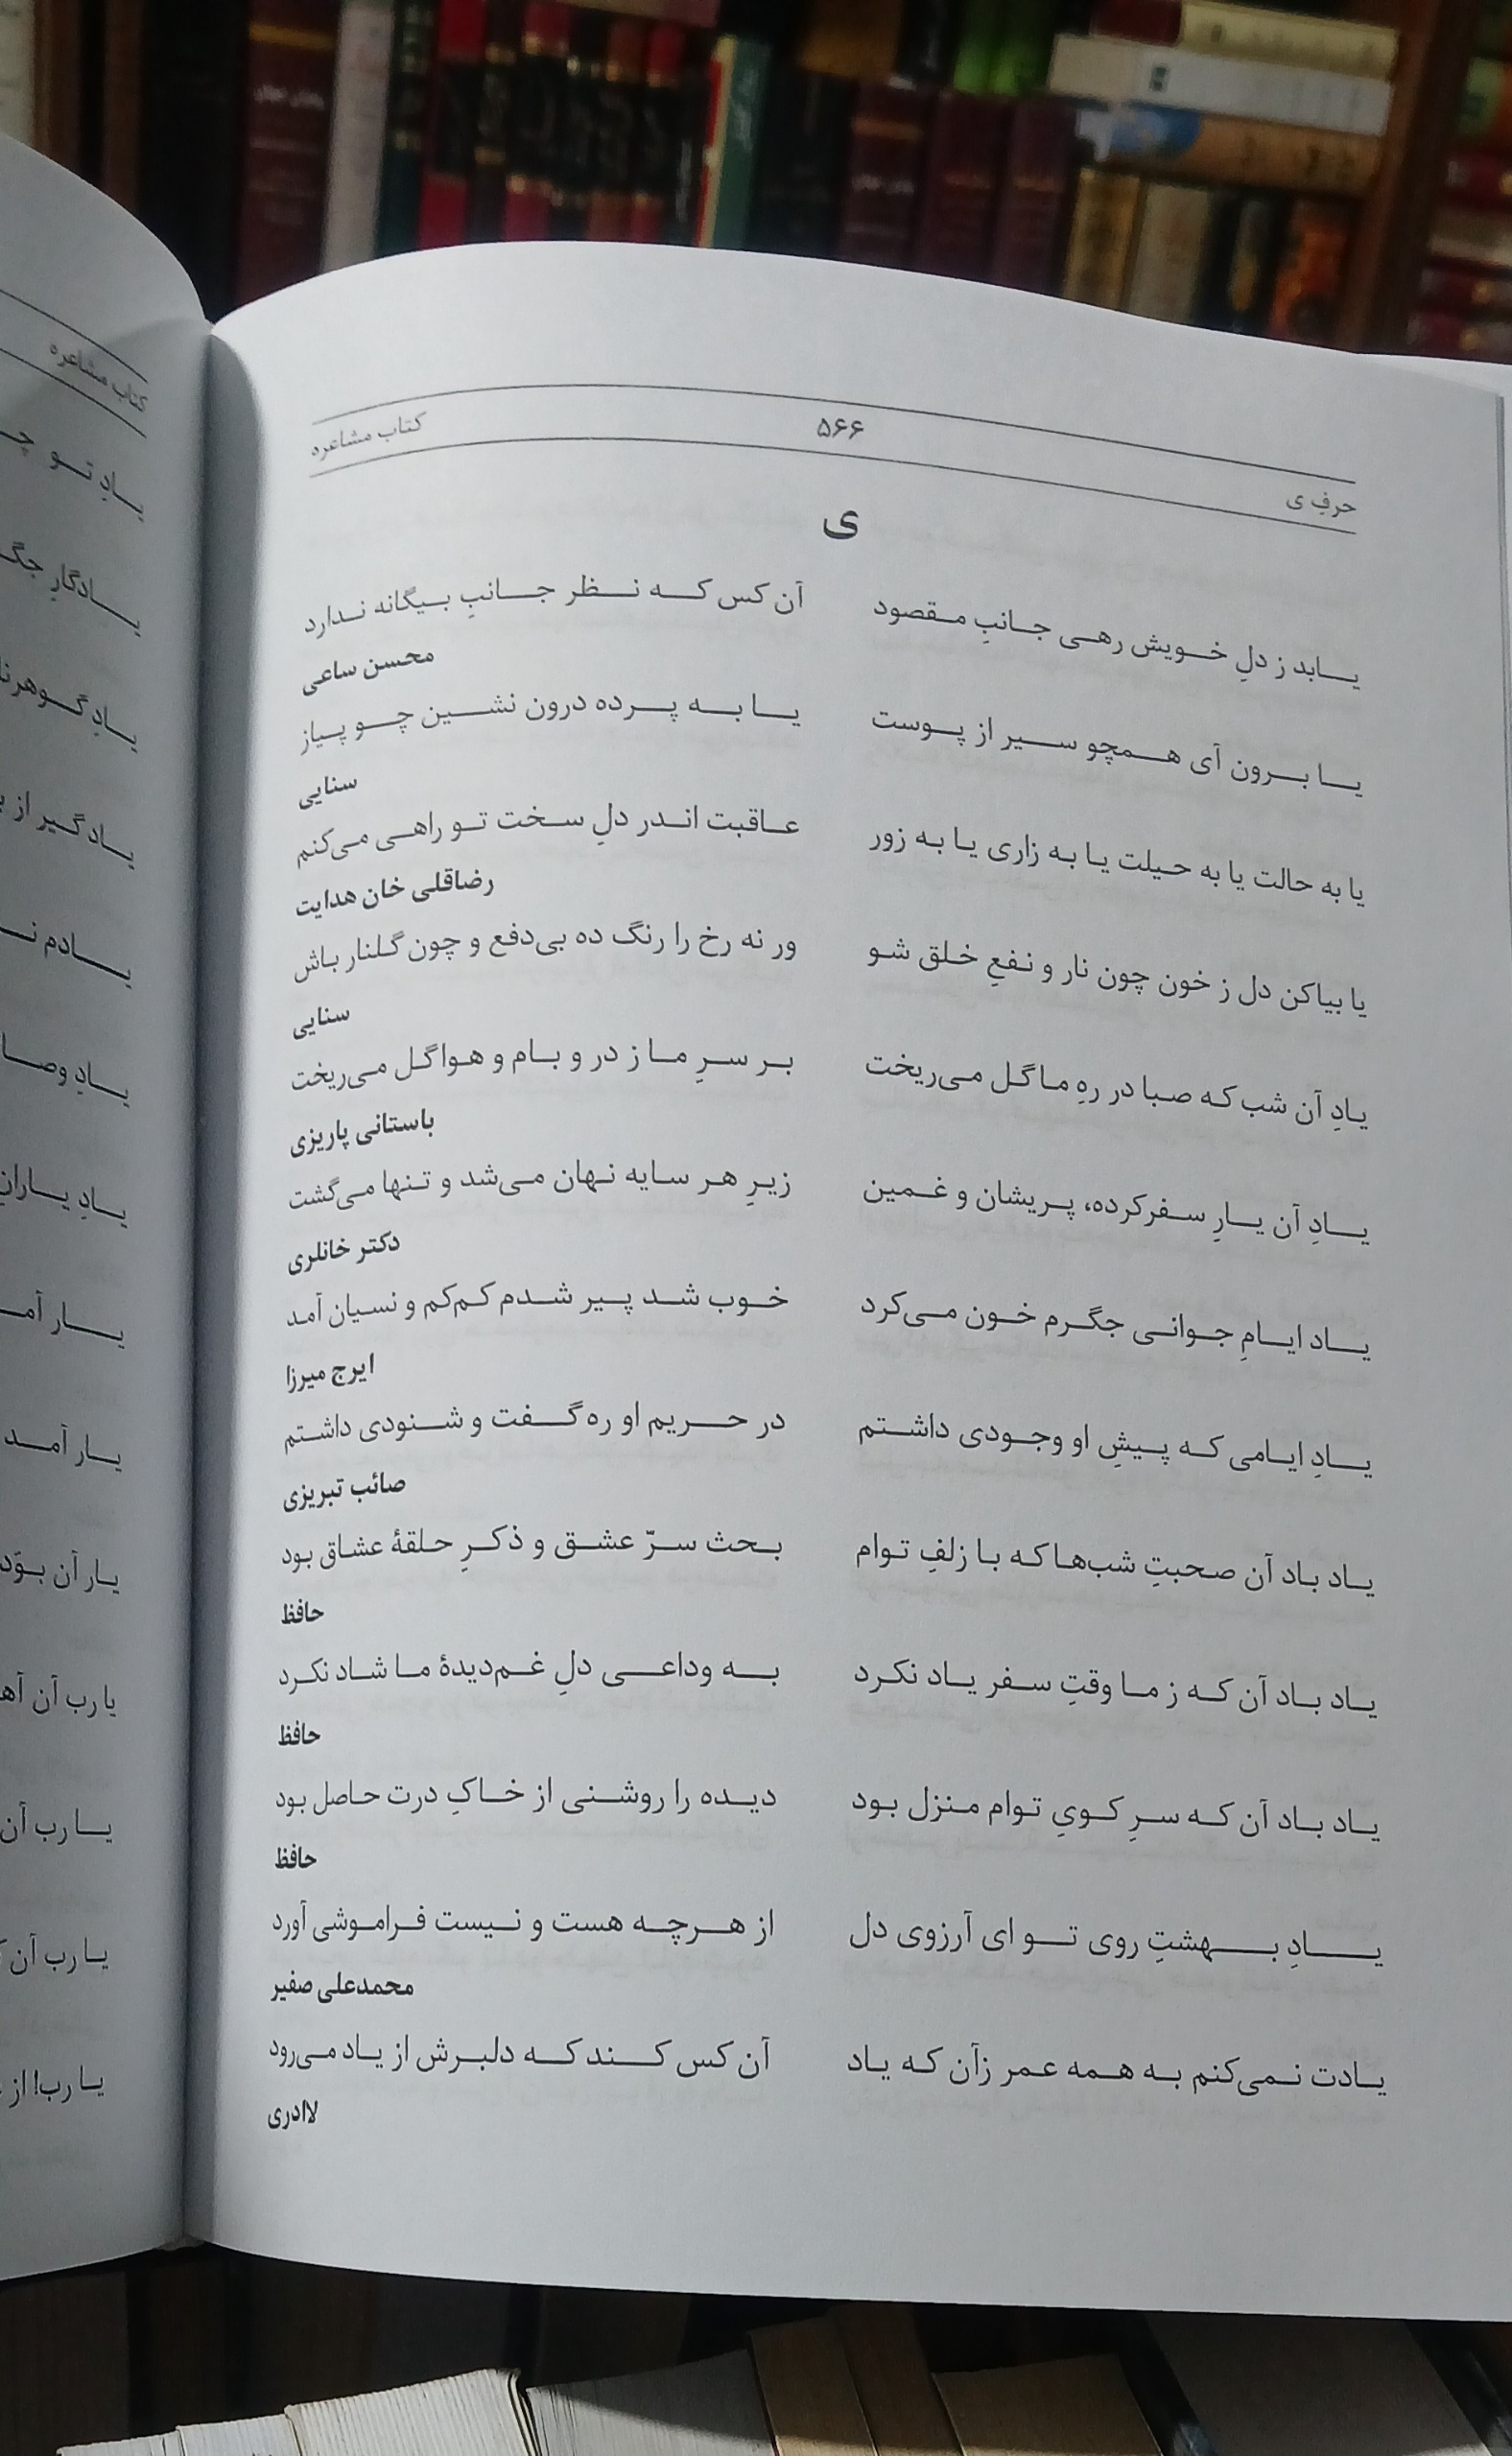 کتاب مشاعره
یادِ تو
یادگارِ
یادِ
یادگیر از
یادم
یادِ
یادِ یارانِ
یار
یار آمد
یار آن بوَد
یا رب آن
یا رب آن
یا رب آن
یا رب! از
حرفِ ی ۵۶۶ کتاب مشاعره
ی
یابد ز دلِ خویش رهی جانبِ مقصود آن کس که نظر جانبِ بیگانه ندارد
محسن ساعی
یا برون آی همچو سیر از پوست یا به پرده درون نشین چو پیاز
سنایی
یا به حالت یا به حیلت یا به زاری یا به زور عاقبت اندر دلِ سخت تو راهی می‌کنم
رضاقلی خان هدایت
یا بیاکن دل ز خون چون نار و نفعِ خلق شو ور نه رخ را رنگ ده بی‌دفع و چون گلنار باش
سنایی
یادِ آن شب که صبا در رهِ ما گل می‌ریخت بر سرِ ما ز در و بام و هوا گل می‌ریخت
باستانی پاریزی
یادِ آن یارِ سفرکرده، پریشان و غمین زیرِ هر سایه نهان می‌شد و تنها می‌گشت
دکتر خانلری
یاد ایامِ جوانی جگرم خون می‌کرد خوب شد پیر شدم کم‌کم و نسیان آمد
ایرج میرزا
یادِ ایامی که پیشِ او وجودی داشتم در حریم او ره گفت و شنودی داشتم
صائب تبریزی
یاد باد آن صحبتِ شب‌ها که با زلفِ توام بحث سرّ عشق و ذکرِ حلقهٔ عشاق بود
حافظ
یاد باد آن که ز ما وقتِ سفر یاد نکرد به وداعی دلِ غم‌دیدهٔ ما شاد نکرد
حافظ
یاد باد آن که سرِ کویِ توام منزل بود دیده را روشنی از خاکِ درت حاصل بود
حافظ
یادِ بهشتِ روی تو ای آرزوی دل از هرچه هست و نیست فراموشی آورد
محمدعلی صفیر
یادت نمی‌کنم به همه عمر زآن که یاد آن کس کند که دلبرش از یاد می‌رود
لاادری